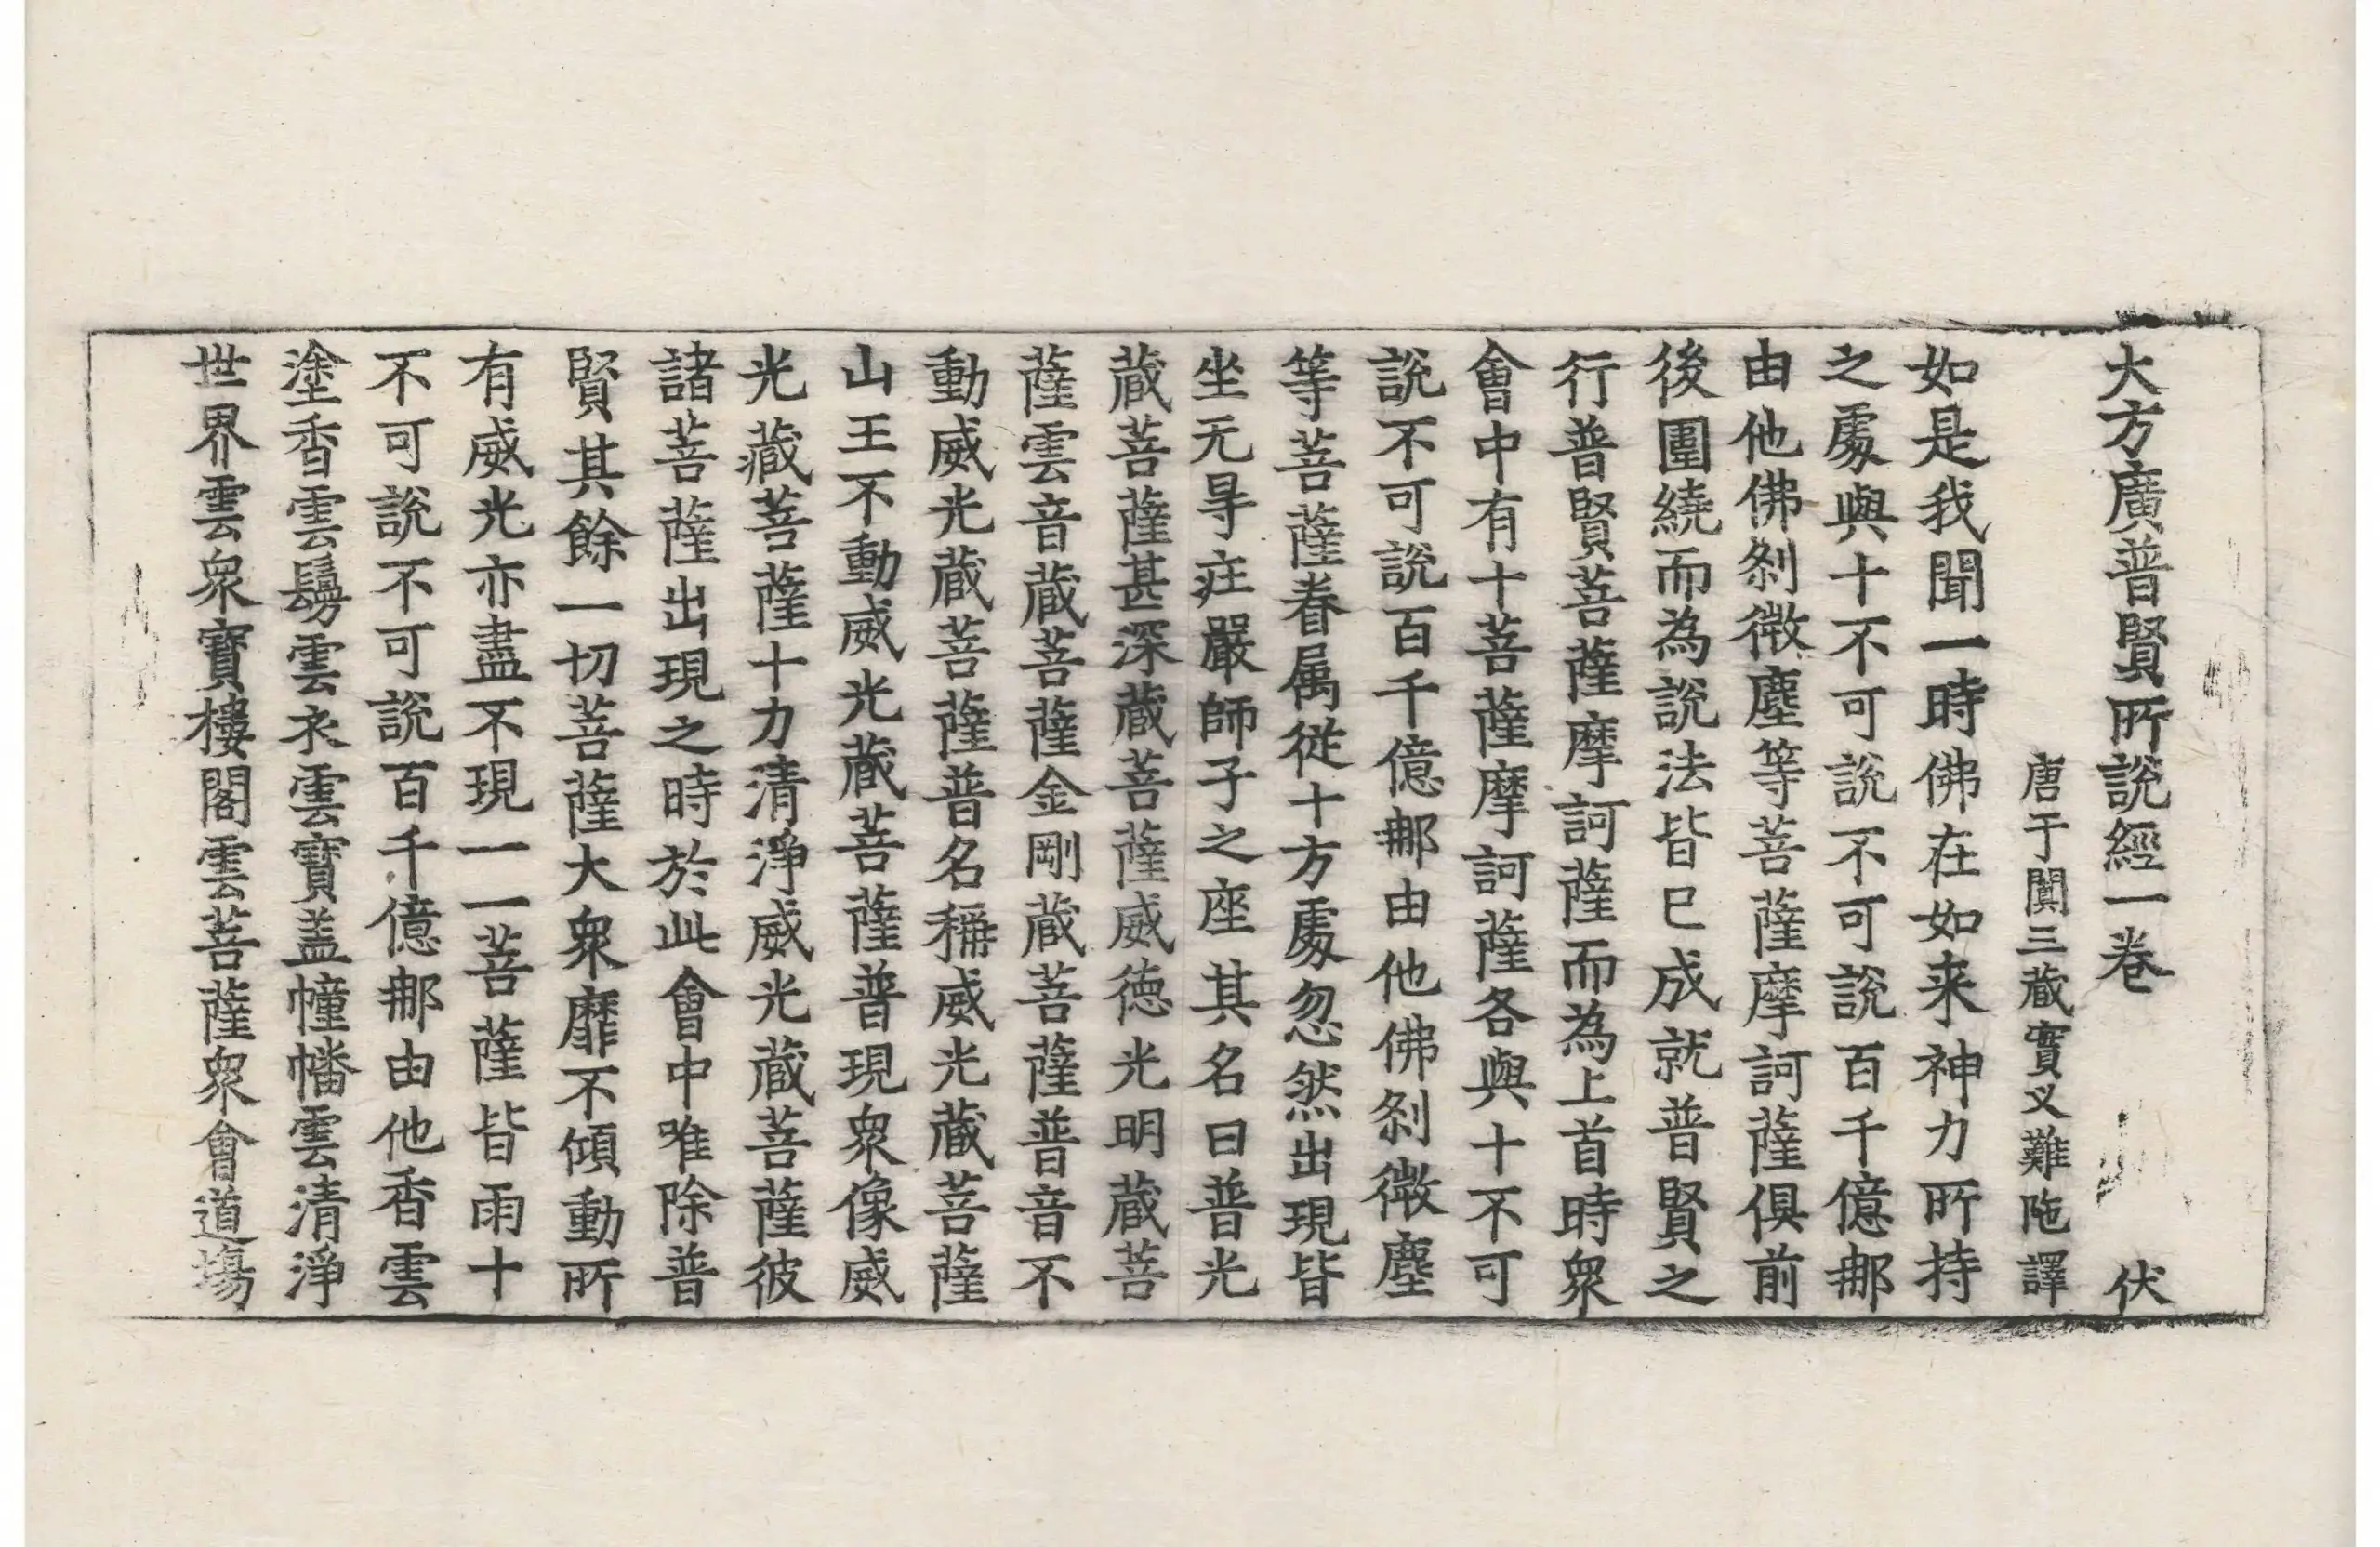 大方廣普賢所說經一卷 伏
唐于闐三藏實叉難陁譯
如是我聞一時佛在如来神力所持
之處與十不可說不可說百千億那
由他佛刹微塵等菩薩摩訶薩俱前
後圍繞而為說法皆已成就普賢之
行普賢菩薩摩訶薩而為上首時衆
會中有十菩薩摩訶薩各與十不可
說不可說百千億那由他佛刹微塵
等菩薩眷属從十方處忽然出現皆
坐无㝵庄嚴師子之座其名曰普光
藏菩薩甚深藏菩薩威德光明藏菩
薩雲音藏菩薩金剛藏菩薩普音不
動威光藏菩薩普名稱威光藏菩薩
山王不動威光藏菩薩普現衆像威
光藏菩薩十力清淨威光藏菩薩彼
諸菩薩出現之時於此會中唯除普
賢其餘一切菩薩大衆靡不傾動所
有威光亦盡不現一一菩薩皆雨十
不可說不可說百千億那由他香雲
塗香雲鬘雲衣雲寶盖幢幡雲清淨
世界雲衆寶樓閣雲菩薩衆會道場